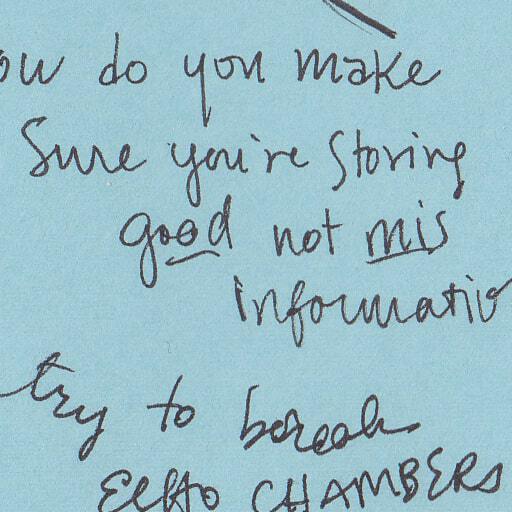 ow do you make
Sure you're Storing
good not mis
informatio
try to break
Echo CHAMBERS